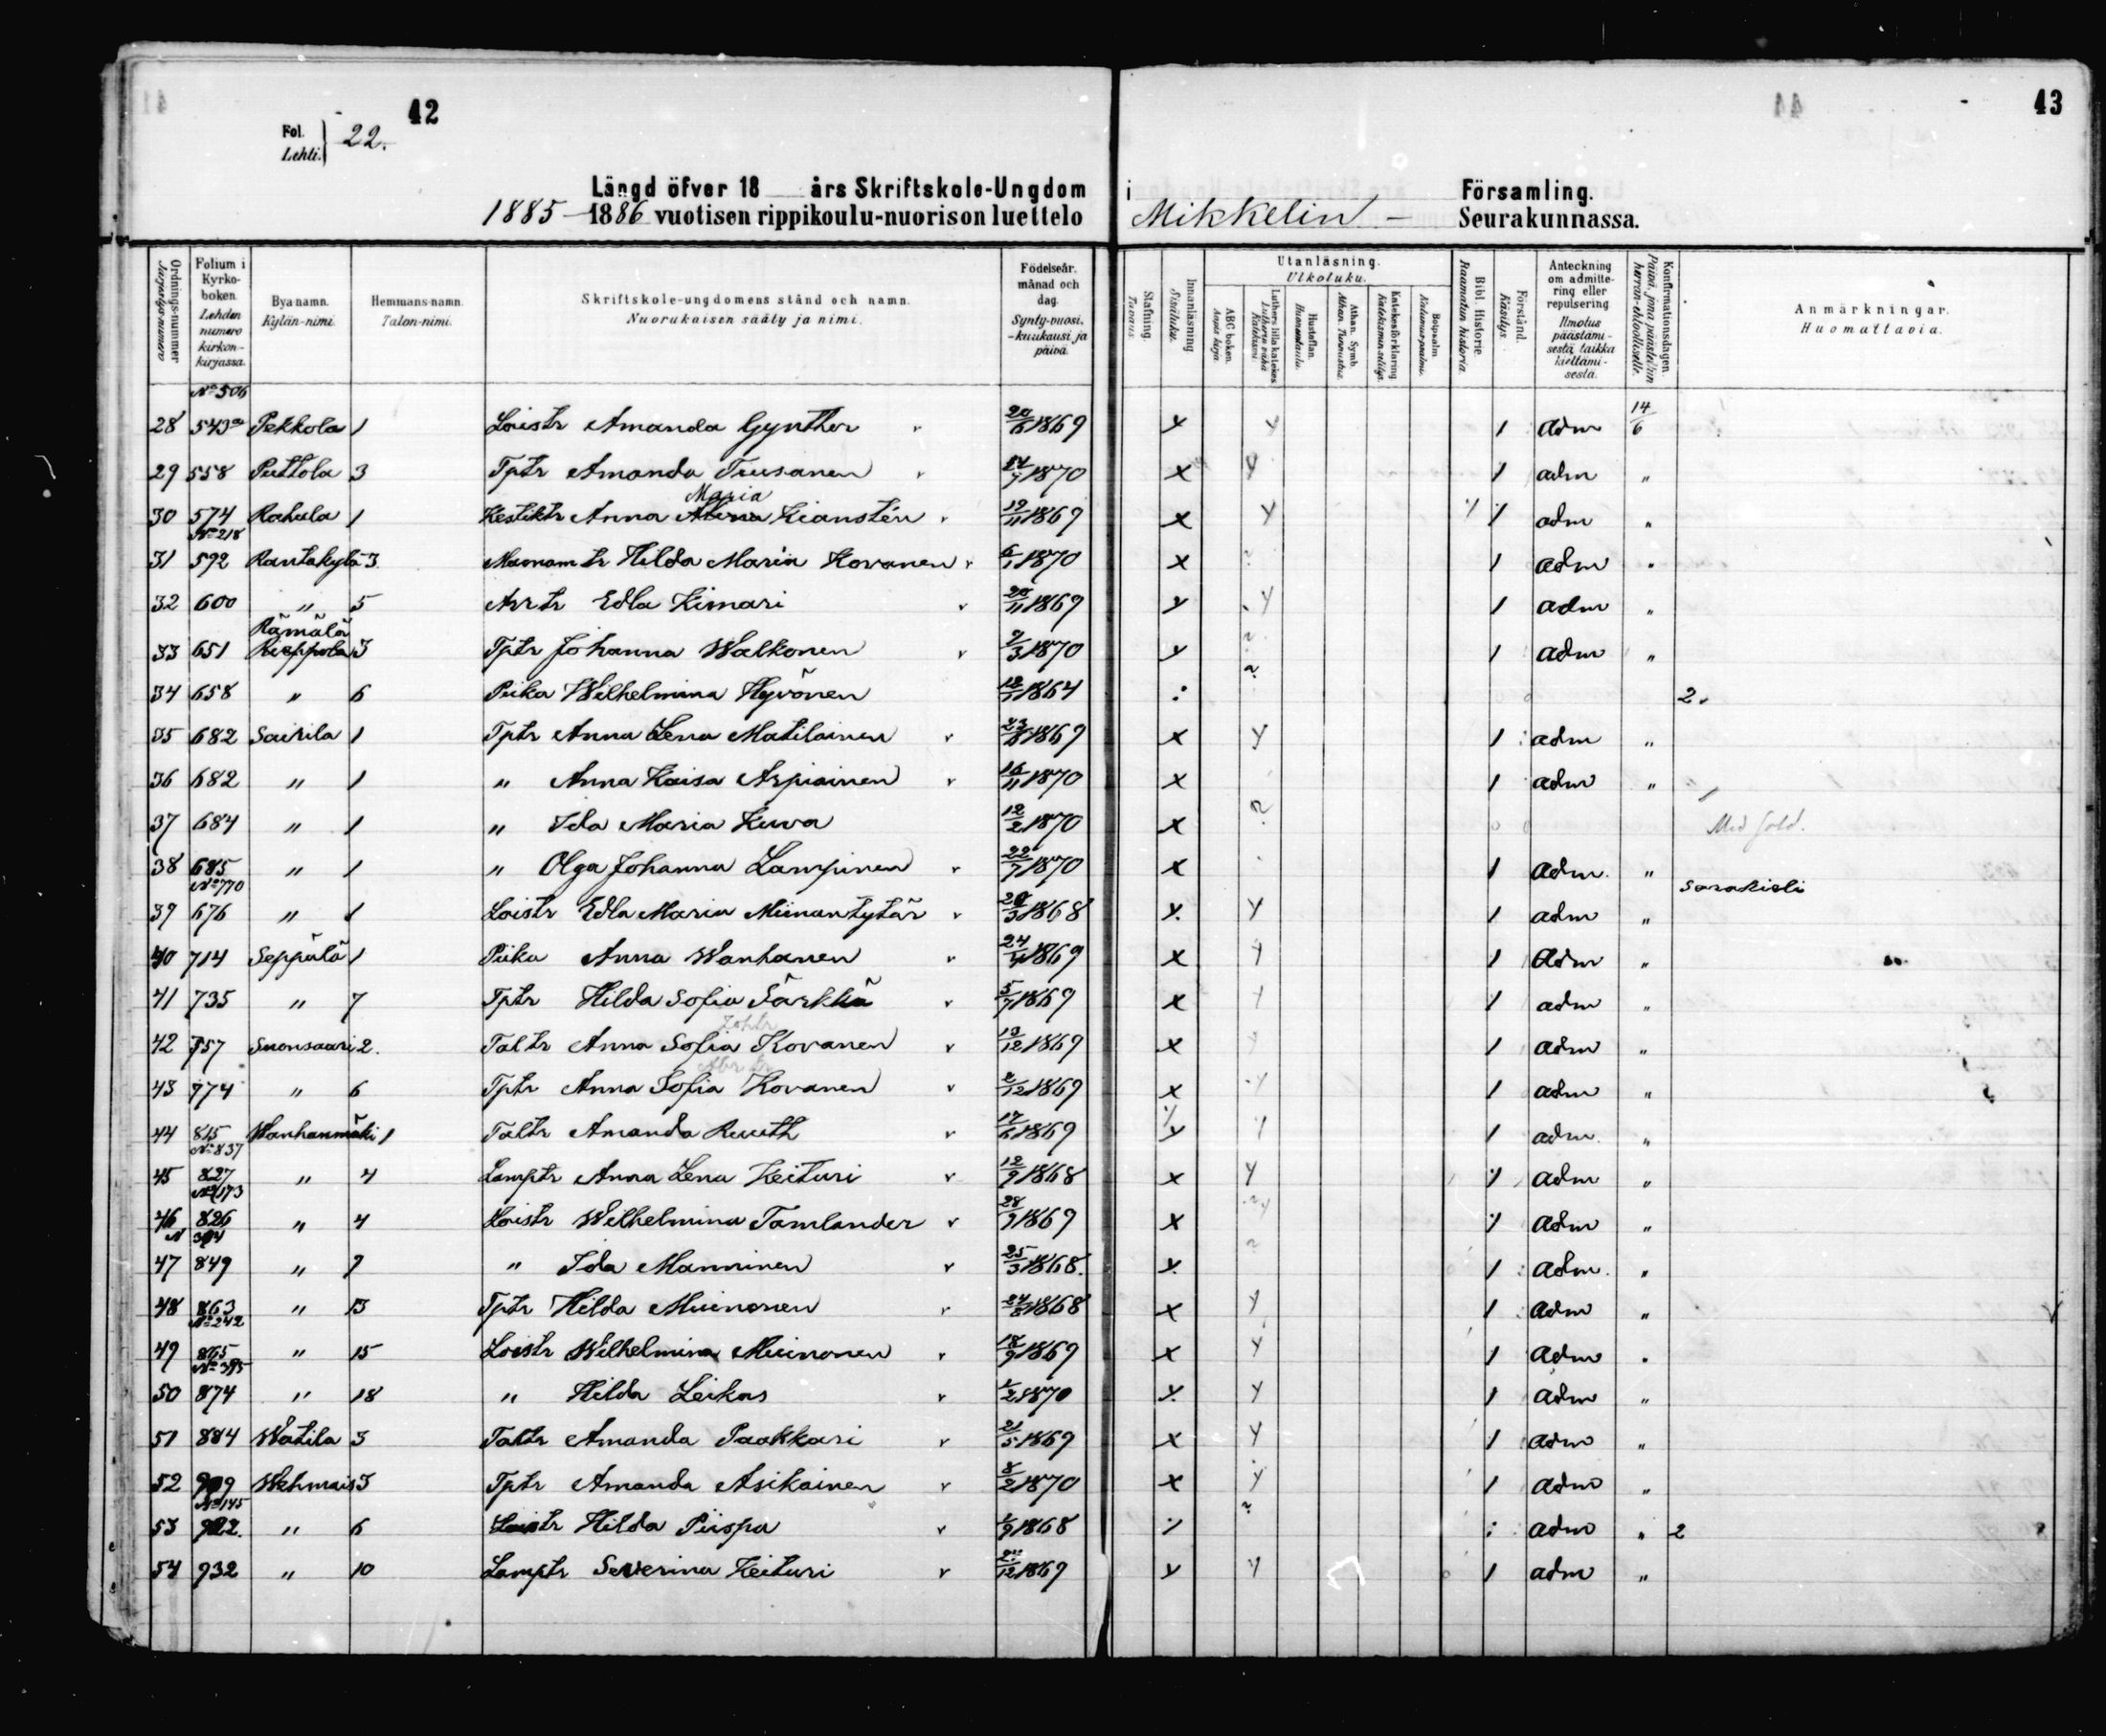 42
43
Fol.
Lehti. } 22.
Längd öfver 18 års Skriftskole-Ungdom i Församling.
1885–1886 vuotisen rippikoulu-nuorison luettelo Mikkelin – Seurakunnassa.
Ordnings-nummer Järjestys-numero
Folium i Kyrko-boken. Lehden numero kirkon-kirjassa.
Bya namn. Kylän-nimi.
Hemmans-namn. Talon-nimi.
Skriftskole-ungdomens stånd och namn. Nuorukaisen sääty ja nimi.
Födelseår. månad och dag. Synty-vuosi. -kuukausi ja päivä.
Stafning. Tavaus.
Innanläsning Sisäluku.
Utanläsning. Ulkoluku.
ABC boken. Aapis kirja.
Luthers lilla katekes Lutherin vähä Katekismi
Hustaflan. Huoneentaulu.
Athan. Symb. Athan. Tunnustus.
Katekesförklaring Katekismin selitys.
Botpsalm Katumus-psalmi.
Bibl. Historie. Raamatun historia.
Förstånd. Käsitys.
Anteckning om admitte-ring eller repulsering Ilmotus päästämi-sestä, taikka kieltämi-sestä.
Konfirmationsdagen. Päivä, jona päästettiin herran-ehtoolliselle.
Anmärkningar. Huomattavia.
No 506
28 543 Pekkola 1 Loistr Amanda Gynther 20/6 1869 y y 1 adm 14/6
29 558 Puttola 3 Tptr Amanda Tuusanen 24/7 1870 x y 1 adm "
Maria
30 574 Rahula 1 Kestiktr Anna Kianstén 19/11 1869 x y 1 adm "
No 218
31 592 Rantakylä 3 Hilda Maria Kovanen 6/1 1870 x 1 adm "
32 600 " 5 Arrtr Edla Kimari 20/11 1869 y y 1 adm "
Rämälä
33 651 3 Tptr Johanna Walkonen 9/3 1870 y 1 adm "
34 658 " 6 Piika Wilhelmina Hyvönen 1864 2.
35 682 Sairila 1 Tptr Anna Lena Matilainen 23/8 1869 x y 1 adm "
36 682 " 1 " Anna Kaisa Arpiainen 16/11 1870 x 1 adm "
37 684 " 1 " Ida Maria Kuva 12/2 1870 x
38 685 " 1 " Olga Johanna Lampinen 22/7 1870 x 1 adm. "
No 770 sorakieli
39 676 " 1 Loistr Edla Maria Miinantytär 20/3 1868 y y 1 adm "
40 714 Seppälä 1 Piika Anna Wanhanen 24/4 1869 x y 1 adm "
41 735 " 7 Tptr Hilda Sofia Särkkä 5/7 1869 x y 1 adm "
42 757 Suonsaari 2. Taltr Anna Sofia Kovanen 13/12 1869 x y 1 adm "
43 774 " 6 Tptr Anna Sofia Kovanen 2/12 1869 x y 1 adm "
44 815 Wanhanmäki 1 Taltr Amanda Ruuth 17/6 1869 y y 1 adm "
No 837
45 827 " 4 Lamptr Anna Lena Keituri 12/9 1868 x y 1 adm "
No 1173
46 826 " 4 Loistr Wilhelmina Tamlander 28/9 1869 x y 1 adm "
N 304
47 849 " 9 " Ida Manninen 25/3 1868. y 1 adm. "
48 863 " 13 Tptr Hilda Muinonen 24/8 1868 x y 1 adm "
No 242
49 865 " 15 Loistr Wilhelmina Muinonen 18/9 1869 x y 1 adm "
No 395
50 874 " 18 " Hilda Leikas 1/2 1870 y y 1 adm "
51 884 Watila 3 Taltr Amanda Paakkari 21/5 1869 x y 1 adm "
52 909 Wehmais 3 Tptr Amanda Asikainen 8/2 1870 x y 1 adm "
No 145
53 922. " 6 Loistr Hilda Piispa 1/9 1868 adm " 2
54 932 " 10 Lamptr Severina Keituri 12 1869 y y 1 adm "